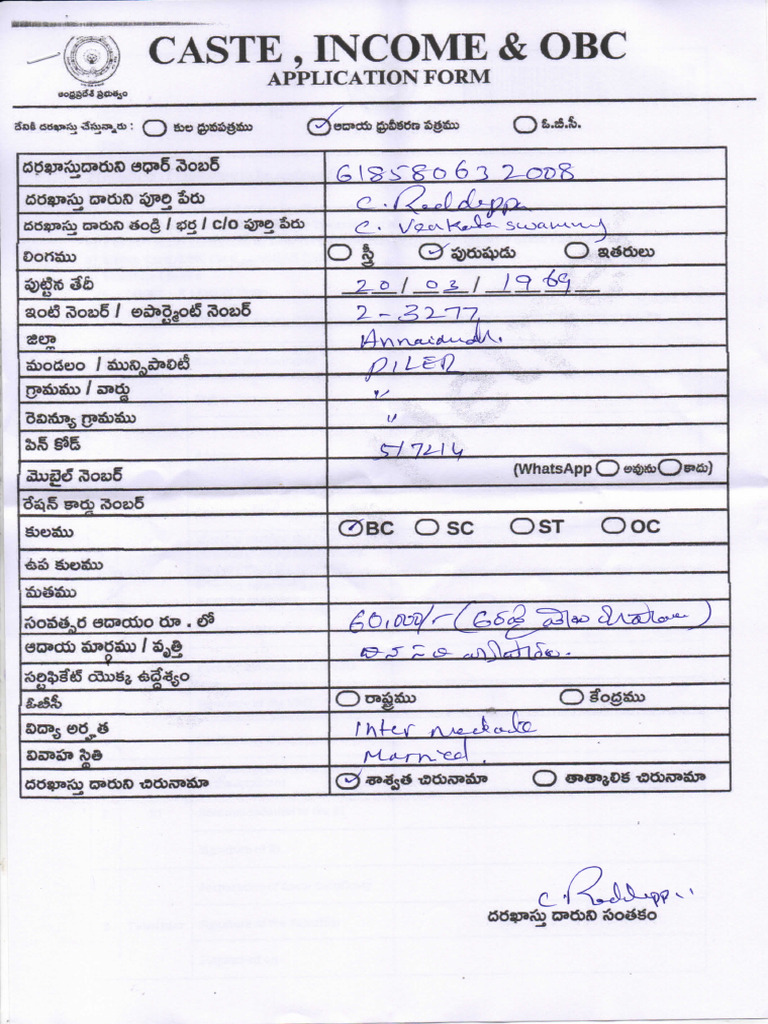 CASTE , INCOME & OBC
APPLICATION FORM
ఆంధ్రప్రదేశ్ ప్రభుత్వం
దేనికి దరఖాస్తు చేస్తున్నారు : కుల ధ్రువపత్రము ఆదాయ ధ్రువీకరణ పత్రము ఓ.బి.సి.
దరఖాస్తుదారుని ఆధార్ నెంబర్ 618580632008
దరఖాస్తు దారుని పూర్తి పేరు C. Reddeppa
దరఖాస్తు దారుని తండ్రి / భర్త / c/o పూర్తి పేరు C. Venkata swamy
లింగము స్త్రీ పురుషుడు ఇతరులు
పుట్టిన తేదీ 20 / 03 / 1969
ఇంటి నెంబర్ / అపార్ట్మెంట్ నెంబర్ 2-3277
జిల్లా
మండలం / మున్సిపాలిటీ PILER
గ్రామము / వార్డు "
రెవిన్యూ గ్రామము "
పిన్ కోడ్ 517214
మొబైల్ నెంబర్ (WhatsApp అవును కాదు)
రేషన్ కార్డు నెంబర్
కులము BC SC ST OC
ఉప కులము
మతము
సంవత్సర ఆదాయం రూ . లో 60,000/-
ఆదాయ మార్గము / వృత్తి
సర్టిఫికేట్ యొక్క ఉద్దేశ్యం
ఓబీసీ రాష్ట్రము కేంద్రము
విద్యా అర్హత Inter mediate
వివాహ స్థితి Married.
దరఖాస్తు దారుని చిరునామా శాశ్వత చిరునామా తాత్కాలిక చిరునామా
C. Reddeppa
దరఖాస్తు దారుని సంతకం